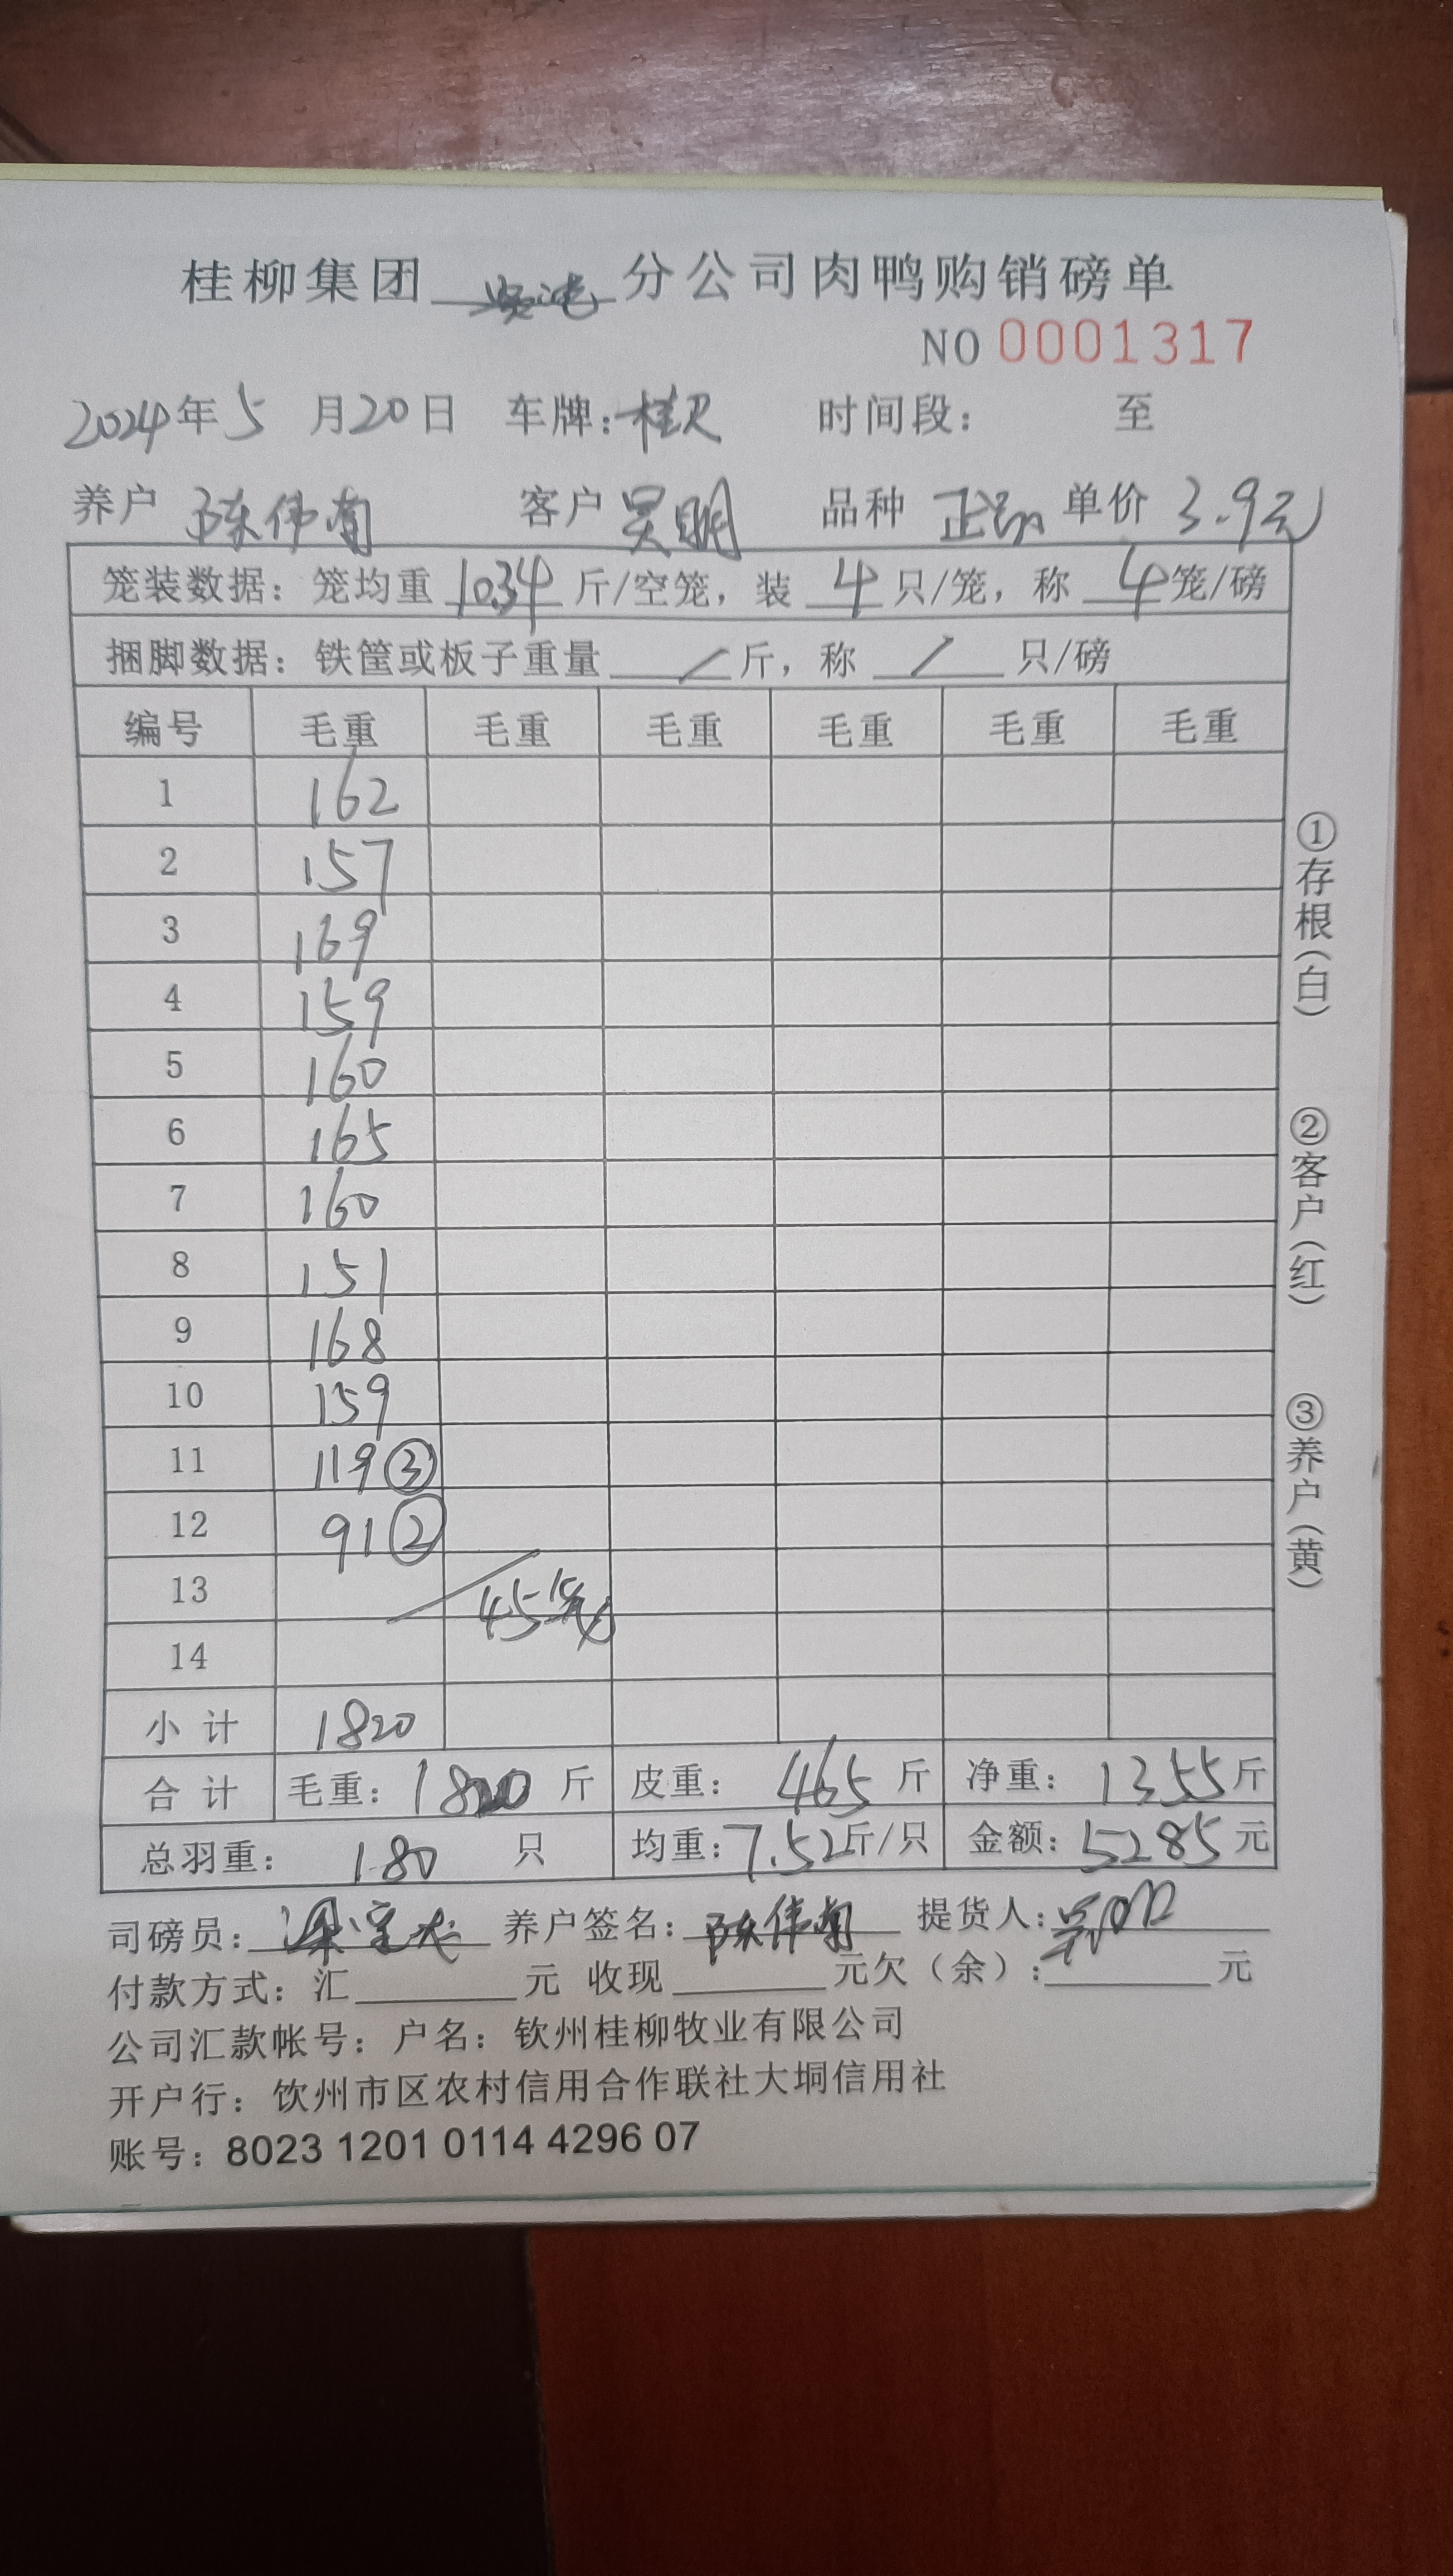 桂柳集团 分公司肉鸭购销磅单
NO 0001317
2024年5月20日 车牌：桂 时间段： 至
养户 陈伟南 客户 吴明 品种 正 单价 3.9元
笼装数据：笼均重 10.34 斤/空笼，装 4 只/笼，称 4 笼/磅
捆脚数据：铁筐或板子重量 / 斤，称 / 只/磅
编号 毛重 毛重 毛重 毛重 毛重 毛重
1 162
2 157
3 169
4 159
5 160
6 165
7 160
8 151
9 168
10 159
11 119③
12 91②
13 45笼
14
小计 1820
合计 毛重：1820 斤 皮重：465 斤 净重：1355斤
总羽重：180 只 均重：7.52斤/只 金额：5285元
司磅员： 养户签名：陈伟南 提货人：
付款方式：汇 元 收现 元欠（余）： 元
公司汇款帐号：户名：钦州桂柳牧业有限公司
开户行：饮州市区农村信用合作联社大垌信用社
账号：8023 1201 0114 4296 07
①存根（白）
②客户（红）
③养户（黄）